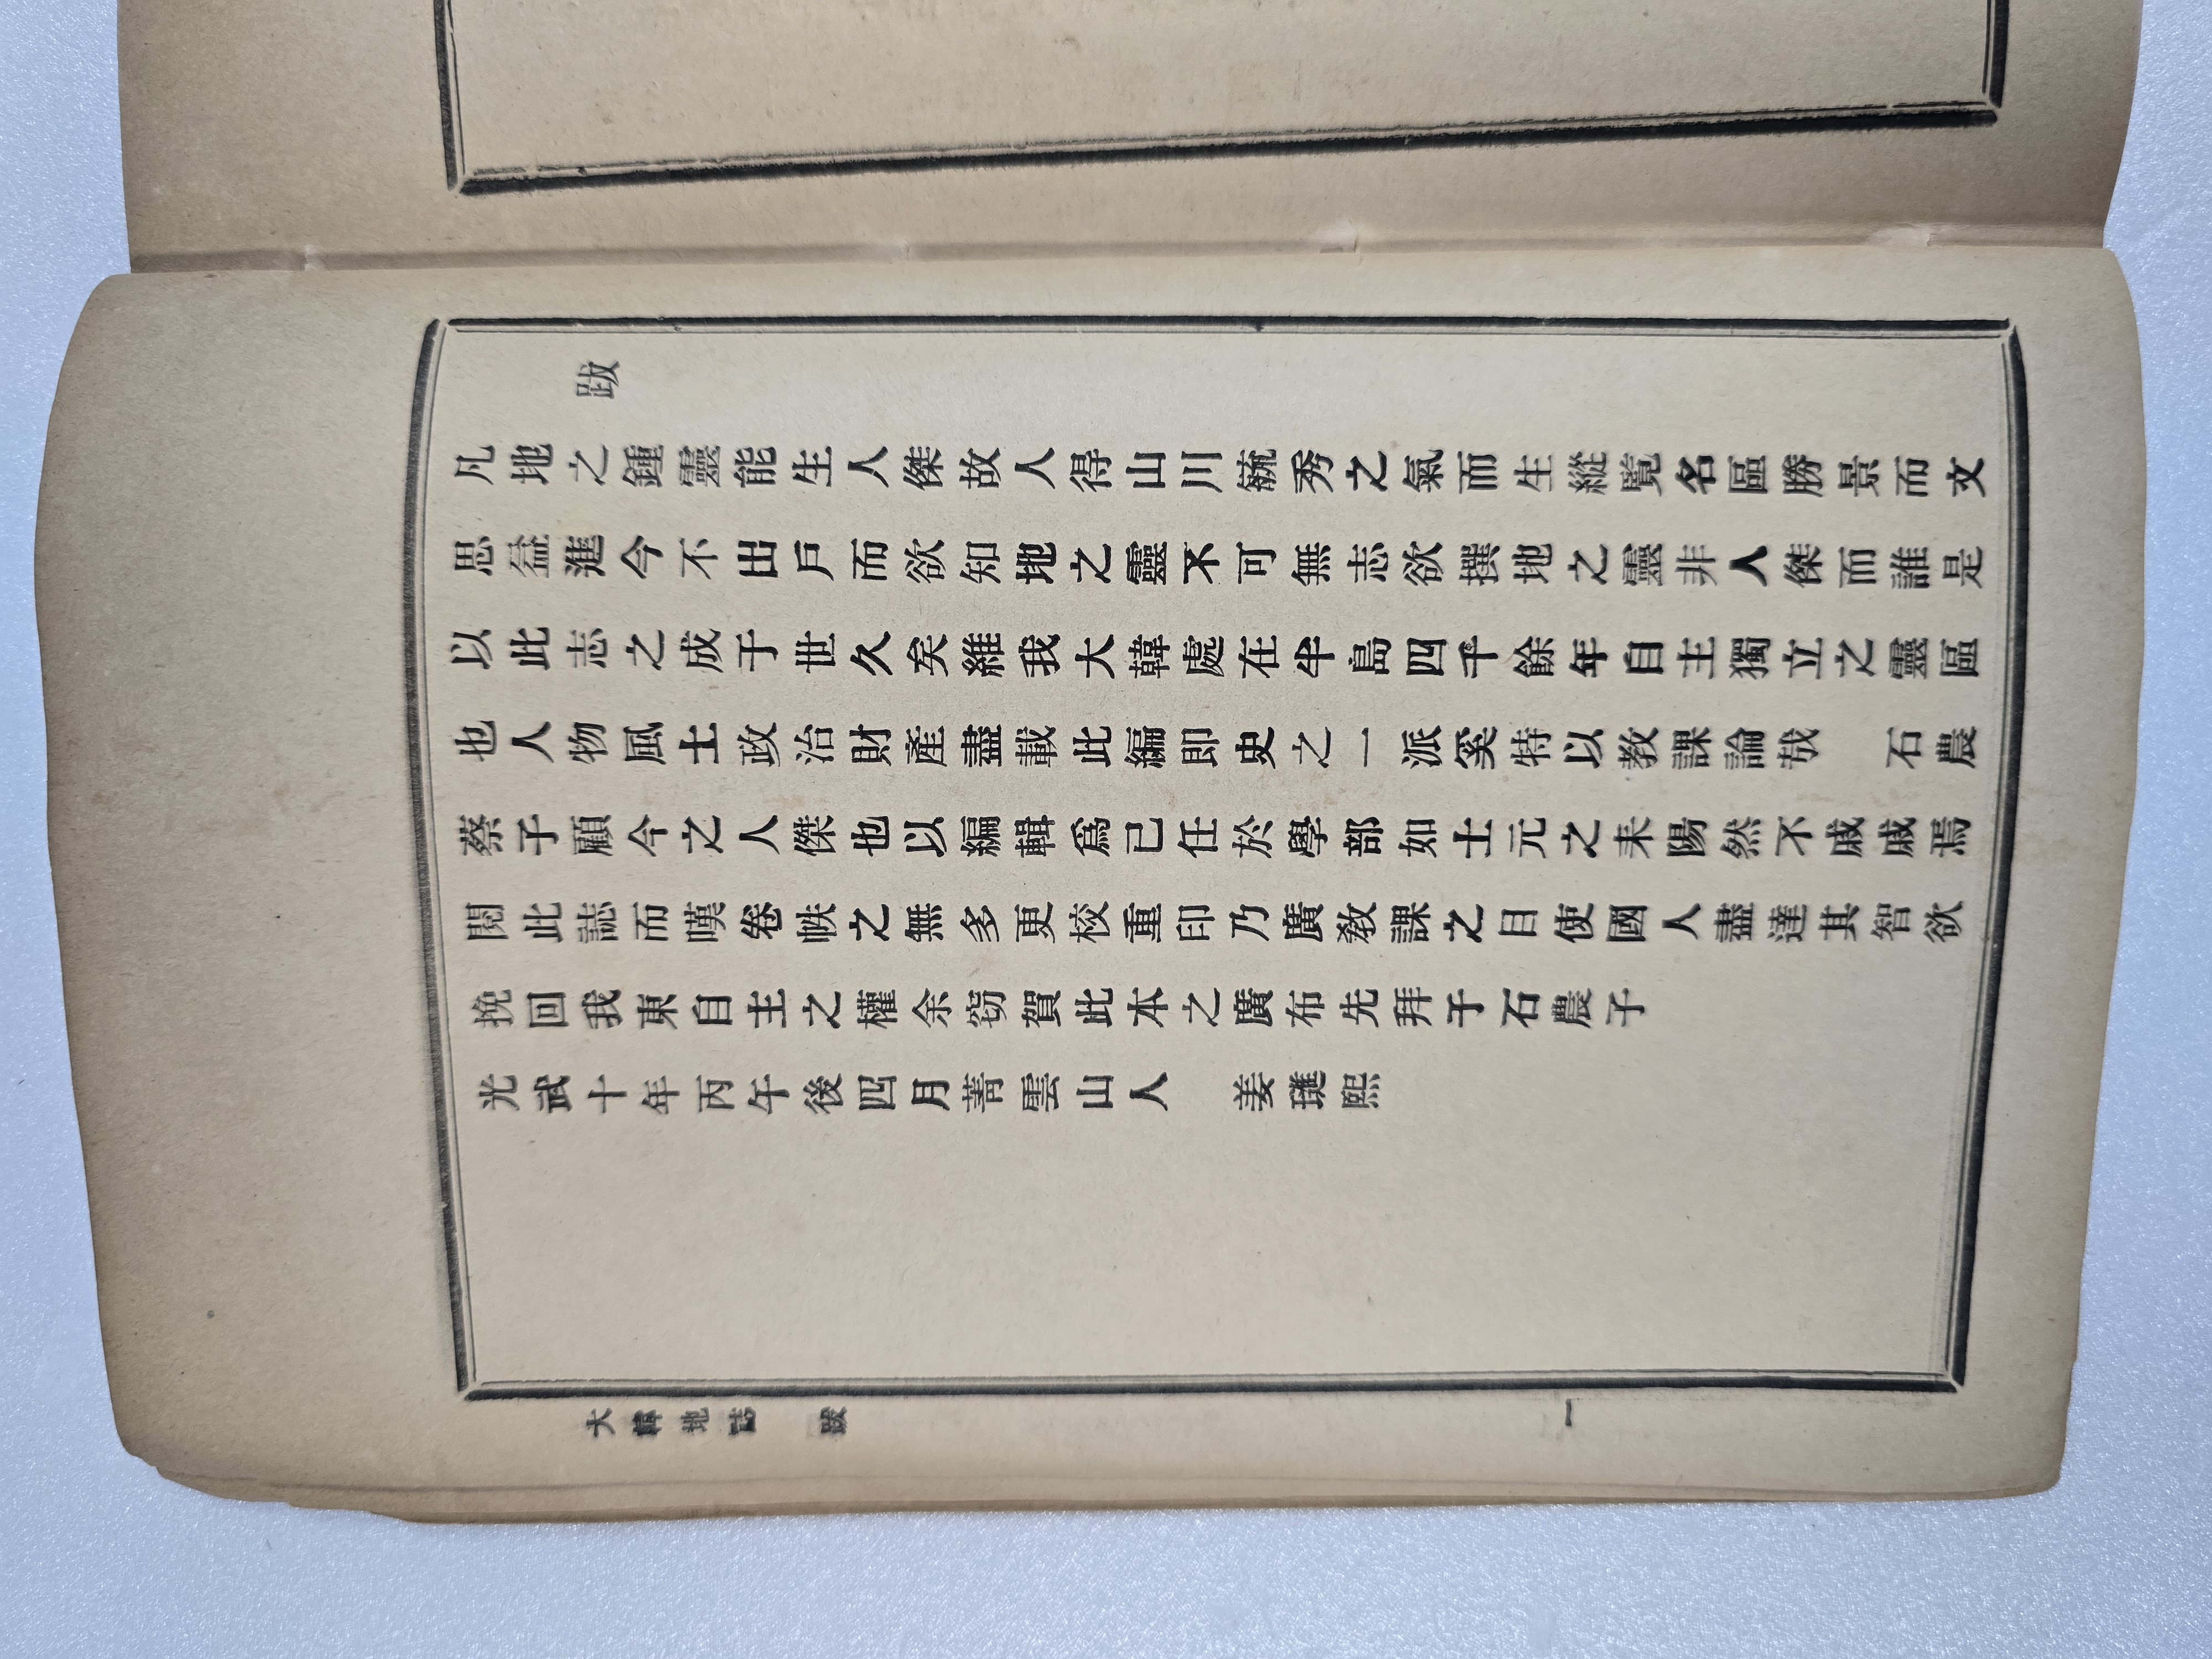 跋
凡地之鍾靈能生人傑故人得山川毓秀之氣而生縱覽名區勝景而文
思益進今不出戶而欲知地之靈不可無志欲撰地之靈非人傑而誰是
以此志之成于世久矣維我大韓處在半島四千餘年自主獨立之靈區
也人物風土政治財產盡載此編即史之一派奚特以教課論哉　石農
蔡子顧今之人傑也以編輯爲已任於學部如士元之耒陽然不戚戚焉
閱此誌而嘆卷帙之無多更校重印乃廣教課之日使國人盡達其智欲
挽回我東自主之權余窃賀此本之廣布先拜于石農子
光武十年丙午後四月蒿雲山人　姜璡熙
大韓地誌　跋　一